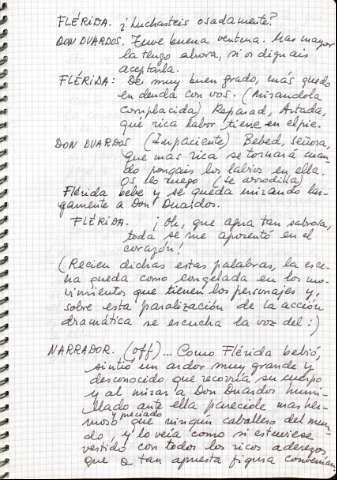 FLÉRIDA. ¡ Luchasteis osadamente?
DON DUARDOS. Tuve buena ventura. Mas mayor
la tengo ahora, si os dignais
aceptarla.
FLÉRIDA: De muy buen grado, más quedo
en deuda con vos. (Mirandola
complacida) Reparad, Artada,
que rica labor tiene en el pie.
DON DUARDOS (impaciente) Bebed, señora,
que mas rica se tornará cuan-
do pongais los labios en ella.
Os lo ruego (se arrodilla)
Flérida bebe y se queda mirando lar-
gamente a Don Duardos.
FLÉRIDA. ¡Oh, que agua tan sabrosa,
toda se me aposentó en el
corazón!
(Recien dichas estas palabras, la esce-
na queda como congelada en los mo-
vimientos que tienen los personajes y,
sobre esta paralización de la acción
dramática se escucha la voz del:)
NARRADOR. (off)... Como Flérida bebió,
sintió un ardor muy grande y
desconocido que recorría su cuerpo
y al mirar a Don Duardos humi-
llado ante ella pareciole mas her-
moso y preciado que ningún caballero del mun-
do, y lo veía como si estuviese
vestido con todos los ricos aderezos
que a tan apuesta figura convenían